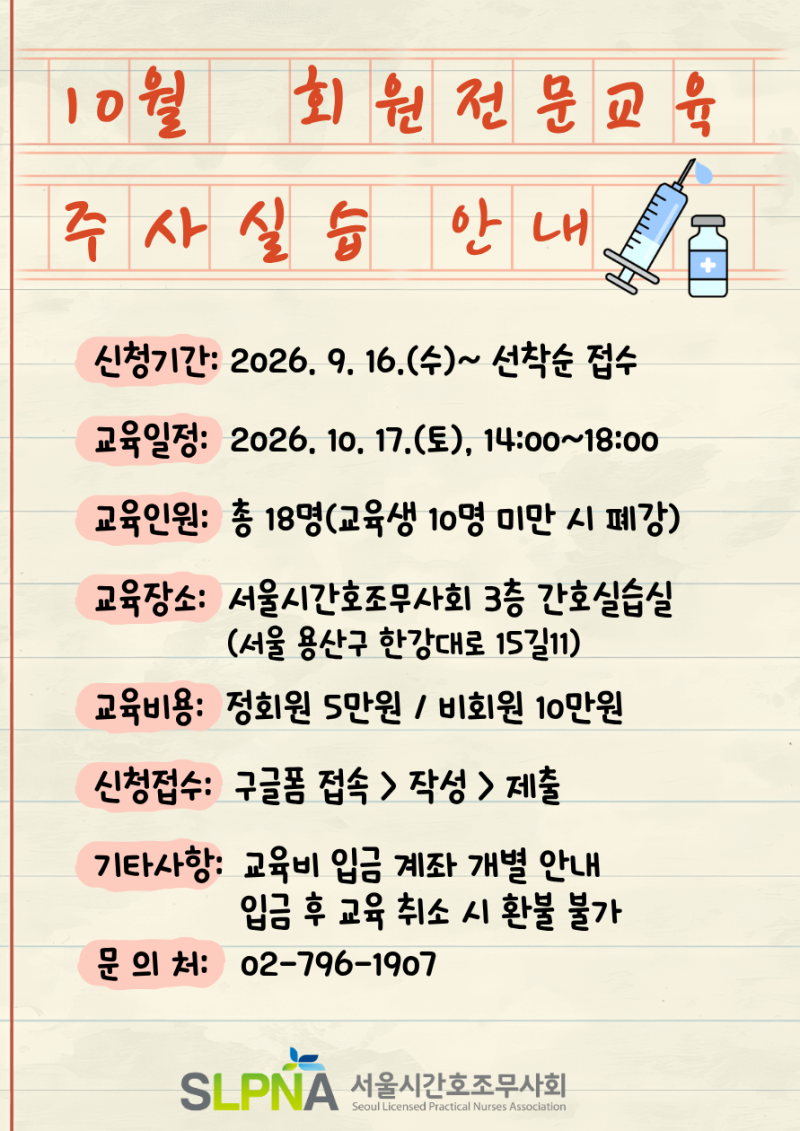 10월 회원전문교육
주사실습 안내
신청기간: 2026. 9. 16.(수)~ 선착순 접수
교육일정: 2026. 10. 17.(토), 14:00~18:00
교육인원: 총 18명(교육생 10명 미만 시 폐강)
교육장소: 서울시간호조무사회 3층 간호실습실
(서울 용산구 한강대로 15길11)
교육비용: 정회원 5만원 / 비회원 10만원
신청접수: 구글폼 접속 > 작성 > 제출
기타사항: 교육비 입금 계좌 개별 안내
입금 후 교육 취소 시 환불 불가
문 의 처: 02-796-1907
SLPNA 서울시간호조무사회
Seoul Licensed Practical Nurses Association